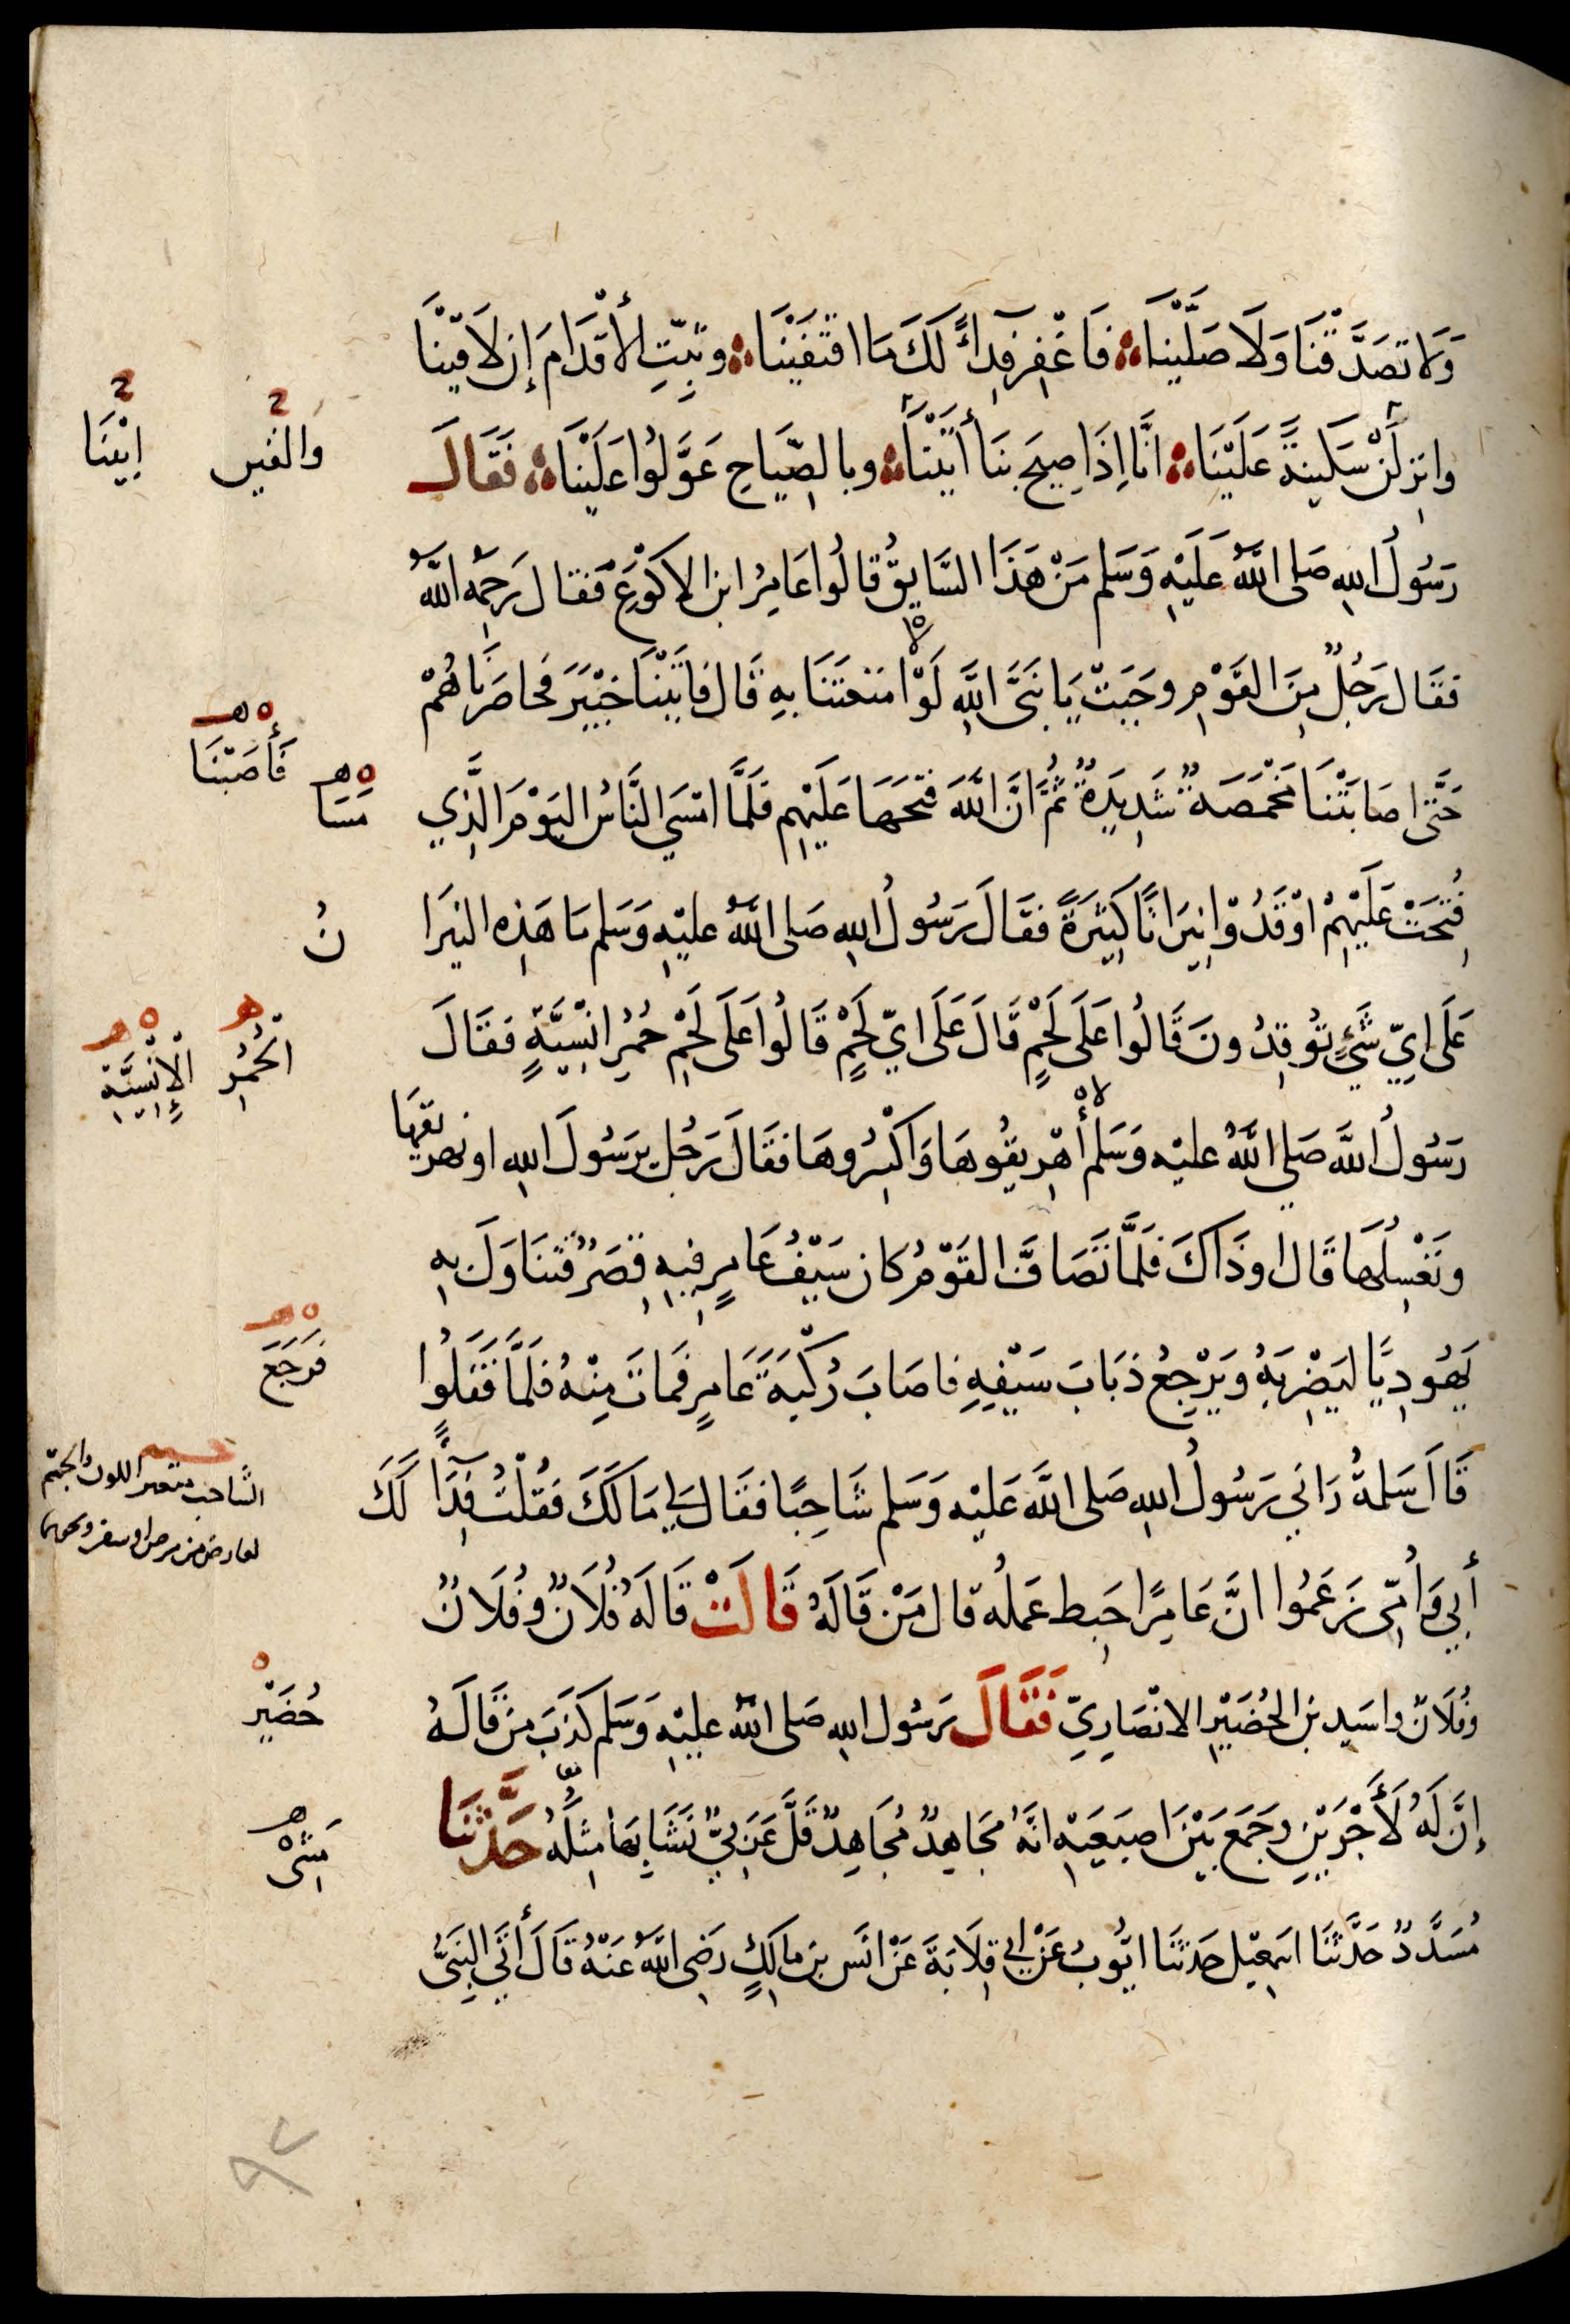 وَلَا تَصَدَّقْنَا وَلَا صَلَّيْنَا فَاغْفِرْ فِدَآءً لَكَ مَا اقْتَفَيْنَا وَثَبِّتِ الْأَقْدَامَ إِن لَاقَيْنَا
وانزِلَنْ سَكِينَةً عَلَيْنَا انَّا اِذَا صِيحَ بِنَا أَتَيْنَا وبالصِّيَاحِ عَوَّلُوا عَلَيْنَا فَقَالَ
والقين
ابَيْنَا
رَسُولُ اللهِ صَلى اللَّهُ عَلَيْهِ وَسَلم مَنْ هَذَا السَّايِقُ قَالُوا عَامِرُ ابن الاكْوَعِ فَقال رَحِمُه اللَّهُ
فقَال رَجُلٌ مِنَ القَوْمِ وجَبَتْ يَا نَبِىَّ اللَّهِ لَوْلَا امْتَعْتَنَا بِهِ قَال فاتَيْنَا خَيْبَرَ فَحاصَرْنَاهُمْ
حَتَّى اصَابَتْنَا مَخْمَصَةٌ شَدِيدَةٌ ثُمَّ انَّ اللَّهَ فَتَحَهَا عَلَيْهِم فَلَمَّا امْسَي النَّاسُ اليَوْمَ الَّذِي
فَأَصَبْنَا
مَسَا
فُتِحَتْ عَلَيْهِمْ اوْقَدُوْا نِيرَانًا كَثِيرَةً فقَالَ رَسُولُ اللهِ صَلى اللَّهُ عليْهِ وَسَلم مَا هَذِه النيرَا
نُ
عَلَى ايِّ شَيْءٍ تُوقِدُونَ قَالُوا عَلَى لَحْمٍ قَالَ عَلَى ايِّ لَحْمٍ قَالُوا عَلَى لَحْمِ حُمُرٍ انْسِيَّةٍ فَقَالَ
الْحُمُرِ
الْإِنْسِيَّةِ
رَسُولُ اللَّهِ صَلي اللَّهُ عليْه وَسَلم أَهْرِيقُوهَا وَاكْسِرُوهَا فقَالَ رَجُل يرَسُولَ اللهِ او نهريقها
ونَغْسِلُهَا قَال اوذَاكَ فَلَمَّا تَصَافَّ القَوْمُ كان سَيْفُ عَامِرٍ فِيهِ قِصَرٌ فتنَاوَلَ بِهِ
يَهُودِيًّا ليَضْرِبَهُ وَيَرْجِعُ ذبَابَ سَيْفِهِ فاصَابَ رُكْبَةَ عَامِرٍ فَماتَ مِنْهُ فلَمَّا قَفَلُوا
فَرَجَعَ
قَالَ سَلمةُ رَاني رَسُولُ اللهِ صَلى اللَّه عَليْه وَسَلم شَاحِبًا فقَال لِي مَا لَكَ فَقُلْتُ فِدًا لَكَ
الشاحب متغير اللون والجسم
لعارض من مرض او سفر ونحوهما
أَبِي وَأُمِّى زَعَمُوا انَّ عَامِرًا حَبِط عَملُه قال مَنْ قَالَهُ قَالَتْ قَالَهُ فُلَانٌ وفُلَانٌ
وفُلَانٌ واسَيد بن الحُضَيْرِ الانْصَارِيِّ فَقَالَ رَسُول اللهِ صَلى اللهُ عليْهِ وَسَلم كَذَبَ من قَالَهُ
حُضَيْرٍ
إنَّ لَهُ لَأَجْرَيْنِ وَجَمَعَ بَيْنَ اصبَعَيْهِ انَّهُ لَجَاهِدٌ مُجَاهِدٌ قَلَّ عَرَبِيٌّ نَشَا بِهَا مِثْلُهُ حَدَّثنَا
مَشَى
مُسَدَّدٌ حَدَّثَنَا اسمعِيل حَدثَنَا ايُّوبُ عَنْ ابي قِلَابَةَ عَنْ انَس بن مالِكٍ رَضِي اللَّهُ عَنْهُ قَالَ أَتَي النَّبِىُّ